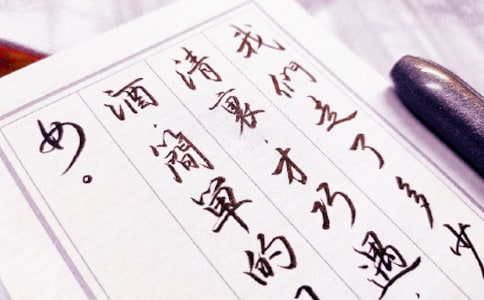 我們走了多少
清裏才巧遇
酒簡單的